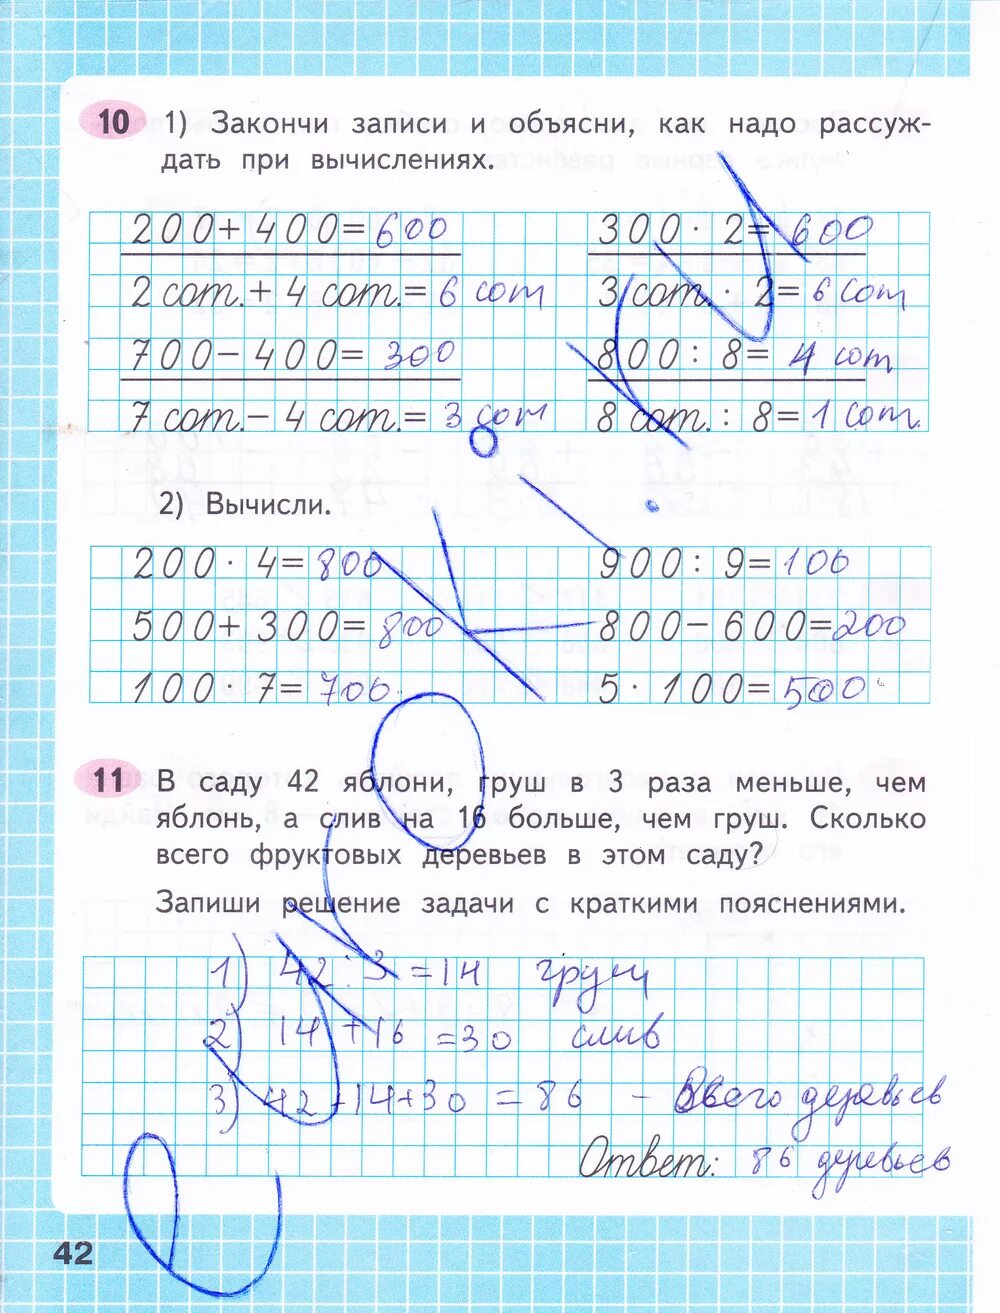 10 1) Закончи записи и объясни, как надо рассуж-
дать при вычислениях.
200 + 400 = 600 300 · 2 = 600
2 сот. + 4 сот. = 6 сот 3 сот. · 2 = 6 сот
700 – 400 = 300 800 : 8 = 4 сот
7 сот. – 4 сот. = 3 сот 8 сот. : 8 = 1 сот.
2) Вычисли.
200 · 4 = 800 900 : 9 = 100
500 + 300 = 800 800 – 600 = 200
100 · 7 = 700 5 · 100 = 500
11 В саду 42 яблони, груш в 3 раза меньше, чем
яблонь, а слив на 16 больше, чем груш. Сколько
всего фруктовых деревьев в этом саду?
Запиши решение задачи с краткими пояснениями.
1) 42 : 3 = 14 груш
2) 14 + 16 = 30 слив
3) 42 + 14 + 30 = 86 – Всего деревьев
Ответ: 86 деревьев
42